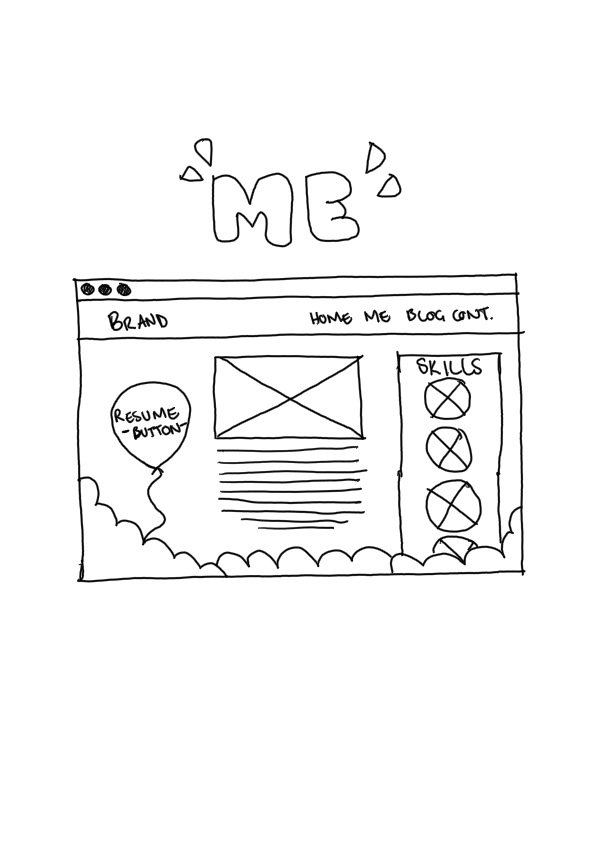 ME
BRAND
HOME ME BLOG CONT.
RESUME
-BUTTON-
SKILLS